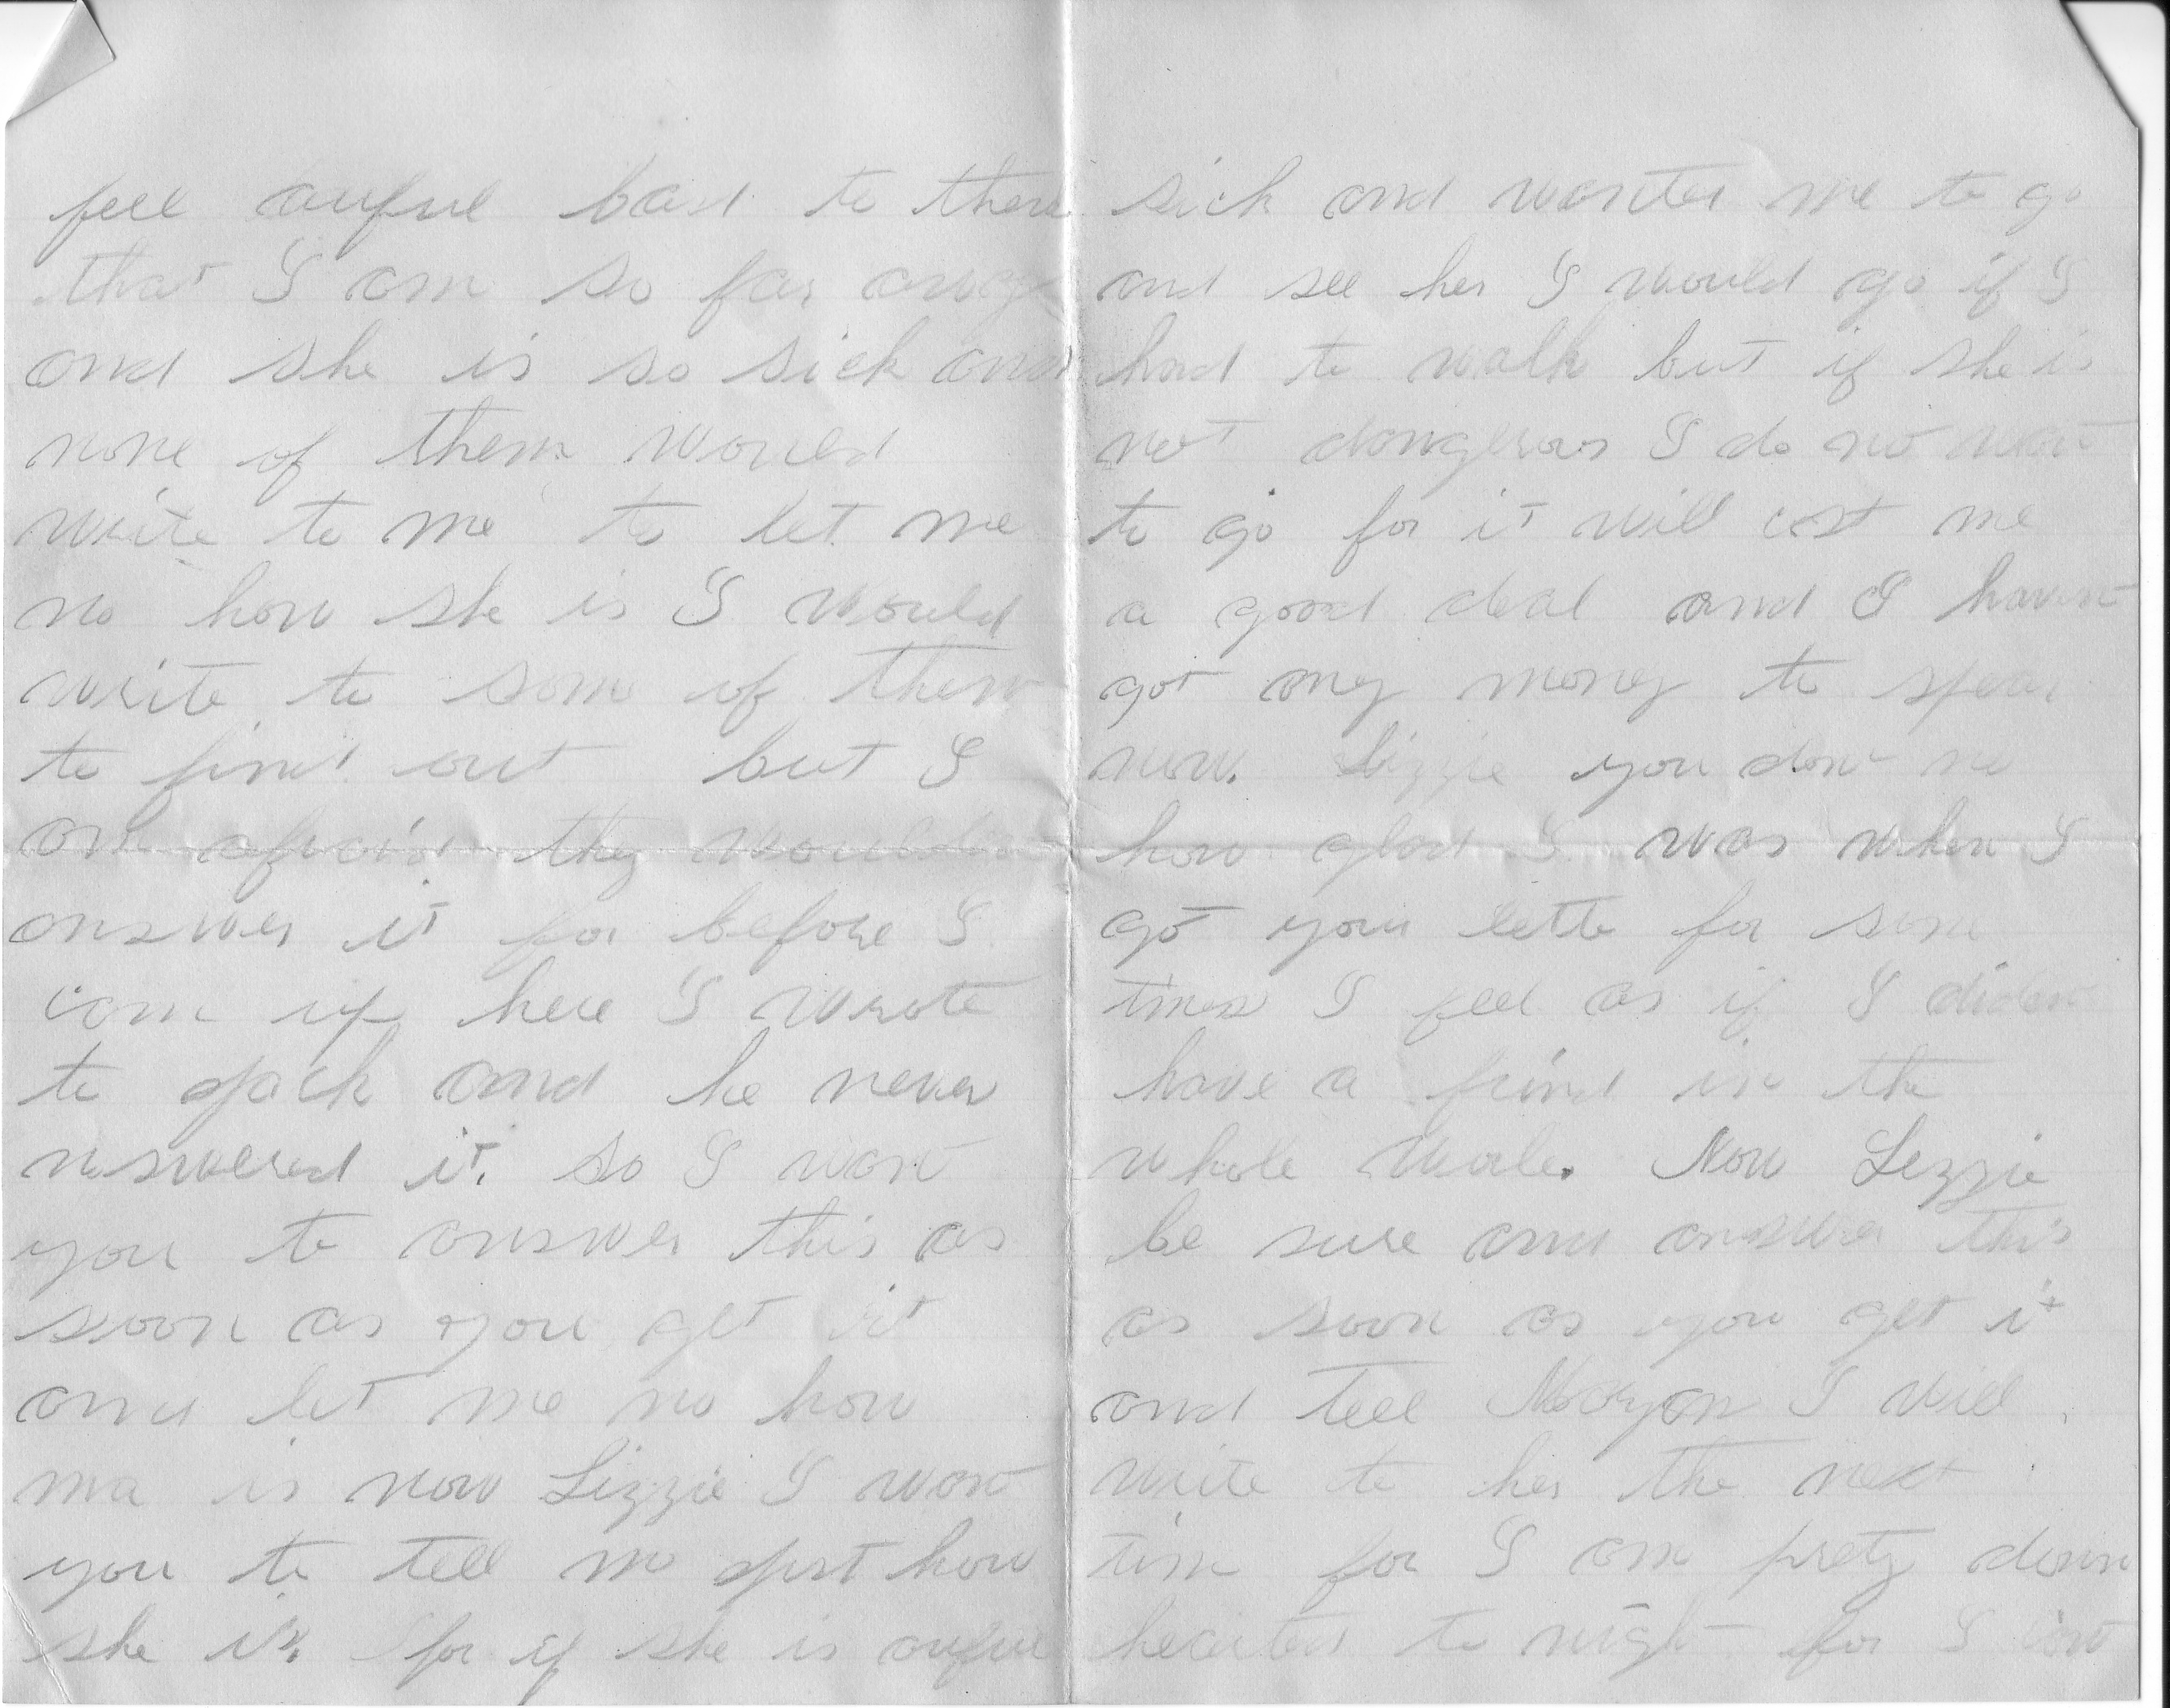 feel auful bad to think
that I am so far away
and she is so sick and
none of them would
write to me to let me
no how she is I would
write to som of them
to find out but I
am afraid they wouldn
answer it for before I
com up here I wrote
to Jack and he never
nswered it. so I want
you to answer this as
soon as you get it
and let me no how
ma is now Lizzie I want
you to tell me Just how
she is. for if she is auful
sick and wantes me to go
and see her I would go if I
had to walk but if she is
not dangerous I do not want
to go for it will cost me
a good deal and I havent
got any money to spear
now. Lizzie you dont no
how glad I was when I
got your lette for some
times I feel as if I didnt
have a frind in the
whole worle. Now Lizzie
be sure and answer this
as soon as you get it
and tell I will
write to her the next
time for I am prety down
hearted to night for I